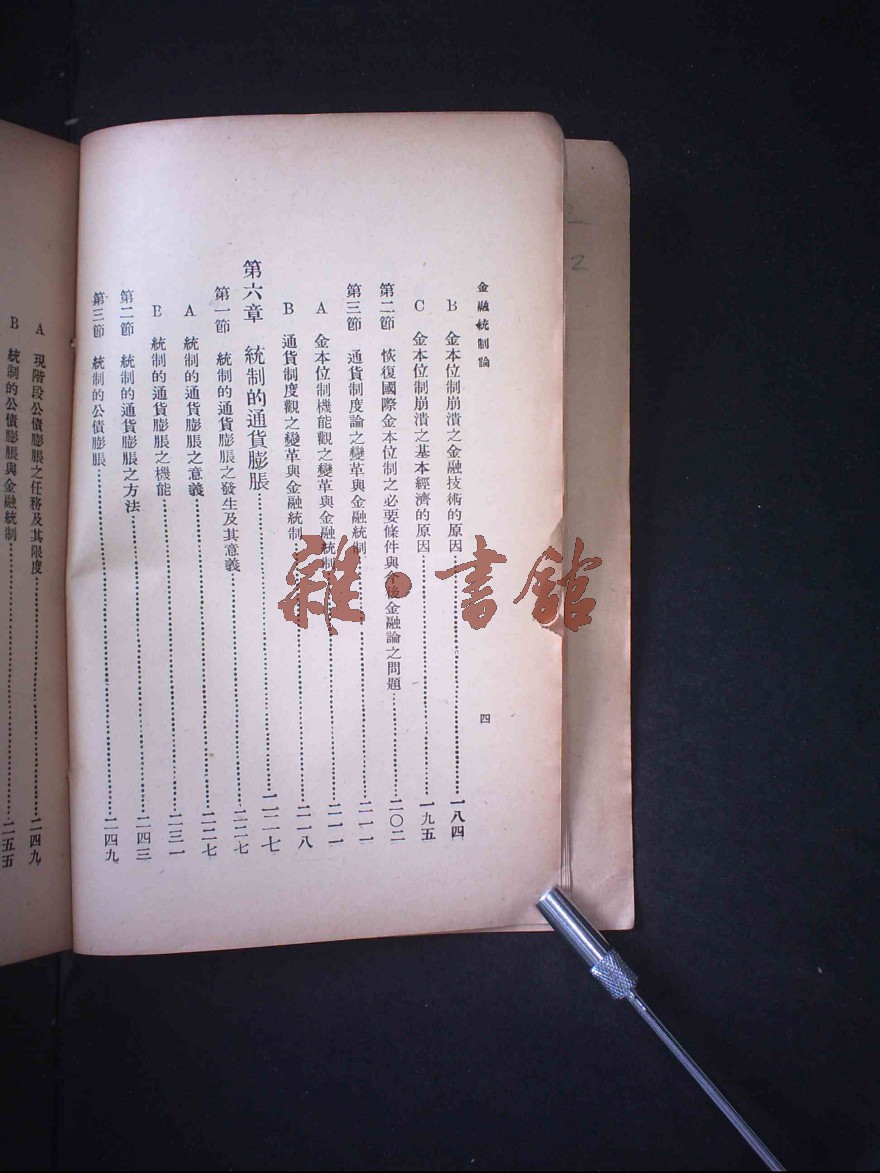 金融統制論
四
B 金本位制崩潰之金融技術的原因……一八四
C 金本位制崩潰之基本經濟的原因……一九五
第二節 恢復國際金本位制之必要條件與今後金融論之問題……二〇二
第三節 通貨制度論之變革與金融統制……二一一
A 金本位制機能觀之變革與金融統制……二一一
B 通貨制度觀之變革與金融統制……二一八
第六章 統制的通貨膨脹……二二七
第一節 統制的通貨膨脹之發生及其意義……二二七
A 統制的通貨膨脹之意義……二二七
B 統制的通貨膨脹之機能……二三一
第二節 統制的通貨膨脹之方法……二四三
第三節 統制的公債膨脹……二四九
A 現階段公債膨脹之任務及其限度……二四九
B 統制的公債膨脹與金融統制……二五五
雜·書館
2